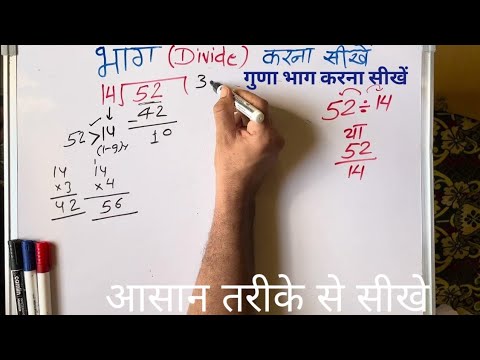 भाग (Divide) करना सीखें
गुणा भाग करना सीखें
14) 52 3
- 42
10
52 > 14
(1-9)
14
×3
42
14
×4
56
52 ÷ 14
या
52
14
आसान तरीके से सीखे